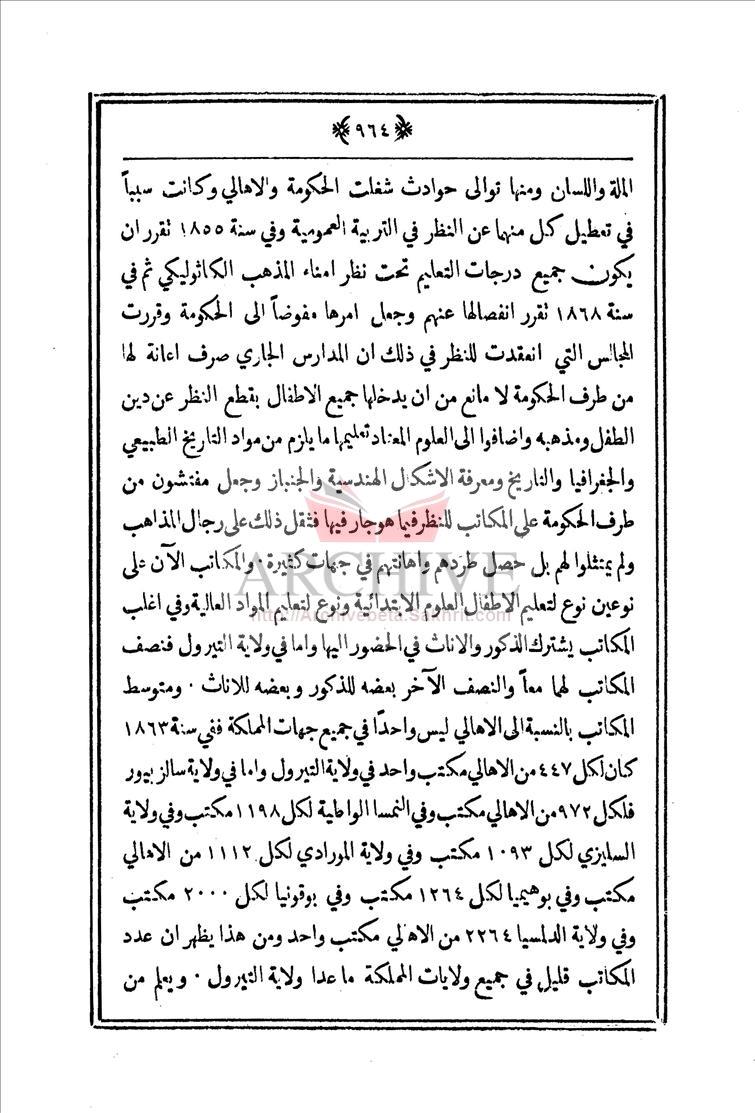 ٩٦٤
الملة واللسان ومنها توالى حوادث شغلت الحكومة والاهالي وكانت سبباً
في تعطيل كل منهما عن النظر في التربية العمومية وفي سنة ١٨٥٥ تقرر ان
يكون جميع درجات التعليم تحت نظر امناء المذهب الكاثوليكي ثم في
سنة ١٨٦٨ تقرر انفصالها عنهم وجعل امرها مفوضاً الى الحكومة وقررت
المجالس التي انعقدت للنظر في ذلك ان المدارس الجاري صرف اعانة لها
من طرف الحكومة لا مانع من ان يدخلها جميع الاطفال بقطع النظر عن دين
الطفل ومذهبه واضافوا الى العلوم المعتاد تعليمها ما يلزم من مواد التاريخ الطبيعي
والجغرافيا والتاريخ ومعرفة الاشكال الهندسية والجنباز وجعل مفتشون من
طرف الحكومة على المكاتب للنظر فيما هو جار فيها فثقل ذلك على رجال المذاهب
ولم يمتثلوا لهم بل حصل طردهم واهانتهم في جهات كثيرة · والمكاتب الآن على
نوعين نوع لتعليم الاطفال العلوم الابتدائية ونوع لتعليم المواد العالية وفي اغلب
المكاتب يشترك الذكور والاناث في الحضور اليها واما في ولاية التيرول فنصف
المكاتب لهما معاً والنصف الآخر بعضه للذكور وبعضه للاناث · ومتوسط
المكاتب بالنسبة الى الاهالي ليس واحدًا في جميع جهات المملكة ففي سنة ١٨٦٣
كان لكل ٤٤٧ من الاهالي مكتب واحد في ولاية التيرول واما في ولاية سالزبور
فلكل ٩٧٢ من الاهالي مكتب وفي النمسا الواطية لكل ١١٩٨ مكتب وفي ولاية
السليزي لكل ١٠٩٣ مكتب وفي ولاية المورادي لكل ١١١٢ من الاهالي
مكتب وفي بوهيميا لكل ١٢٦٤ مكتب وفي بوقونيا لكل ٢٠٠٠ مكتب
وفي ولاية الدلمسيا ٢٢٦٤ من الاهالي مكتب واحد ومن هذا يظهر ان عدد
المكاتب قليل في جميع ولايات المملكة ما عدا ولاية التيرول · ويعلم من
ARCHIVE
http://Archivebeta.Sakhrit.com